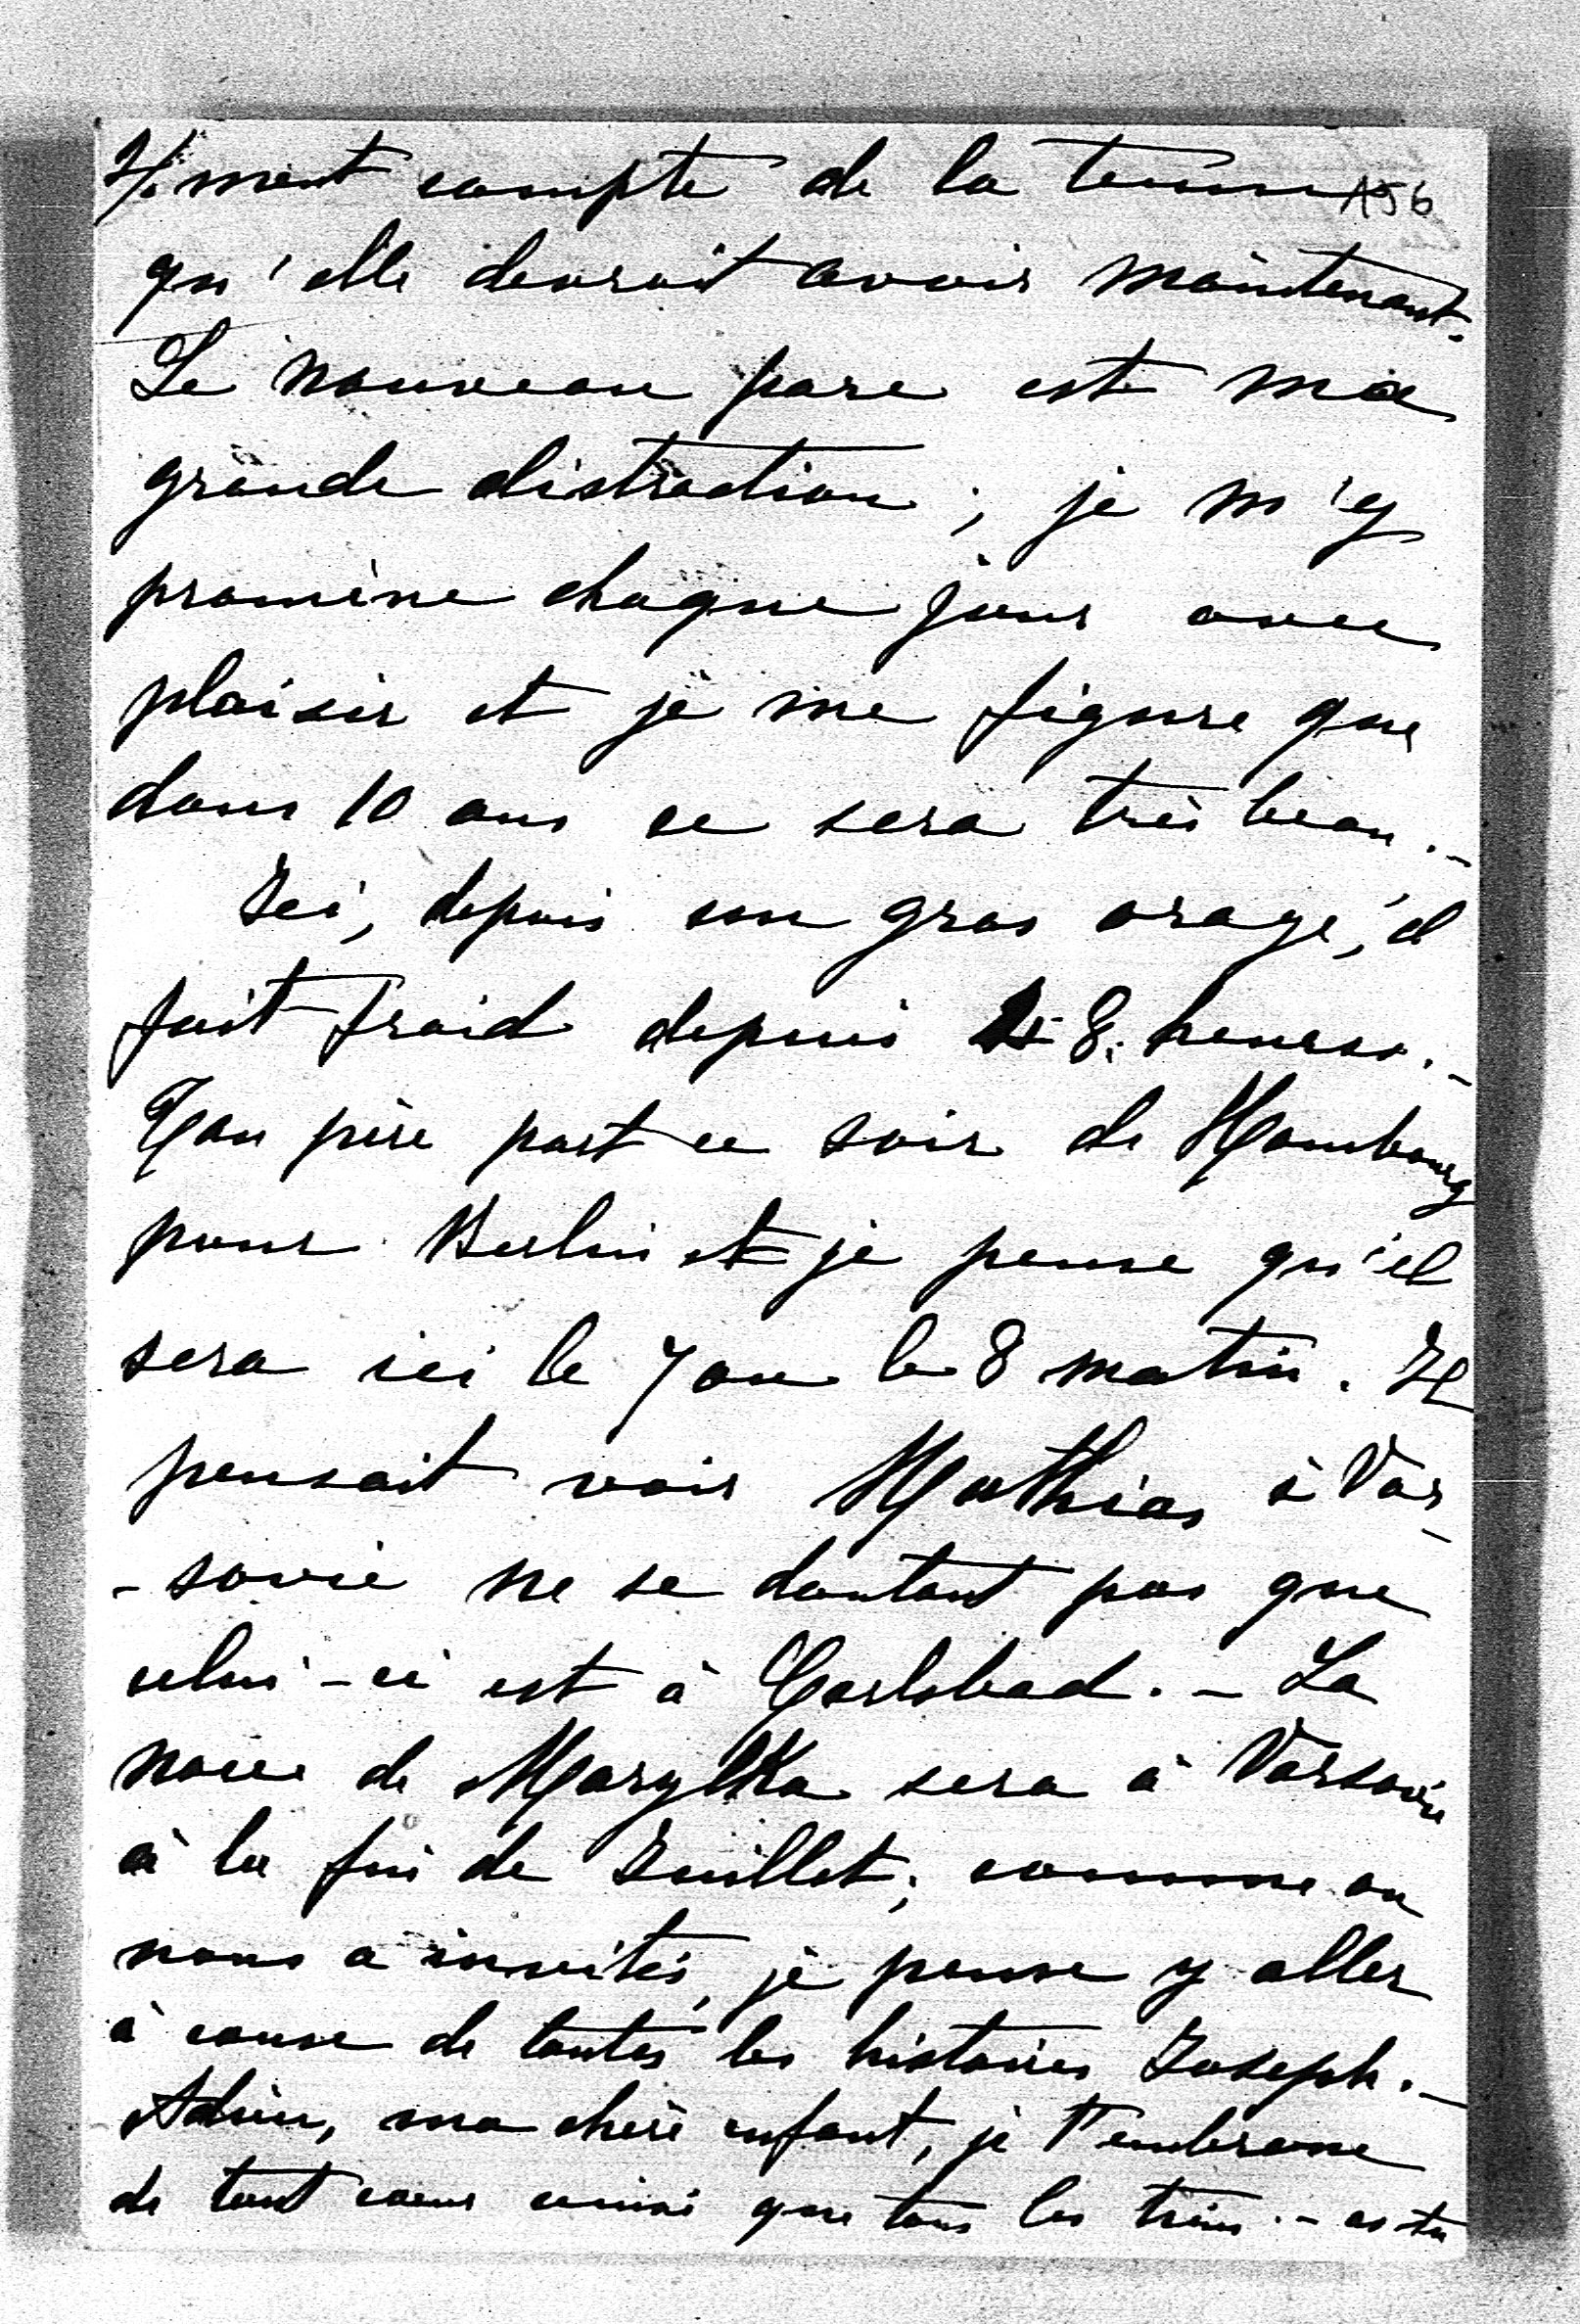 4/. ment compte de la tenue 156
qu'elle devrait avoir maintenant.
Le nouveau parc est ma
grande distraction ; je m'y
promène chaque jour avec
plaisir et je me figure que
dans 10 ans ce sera très beau. _
Ici, depuis un gros orage, il
fait froid depuis 48 heures. _
Ton père part ce soir de Hombourg
pour Berlin et je pense qu'il
sera ici le 7 ou le 8 matin. Il
pensait voir Mathias à Var_
- sovie ne se doutant pas que
celui-ci est à Carlsbad. _ La
noce de Marylka sera à Varsovie
à la fin de Juillet; comme on
nous a invités, je pense y aller
à cause de toutes les histoires Joseph. _
Adieu, ma chère enfant, je t'embrasse
de tout coeur ainsi que tous les tiens. - as tu